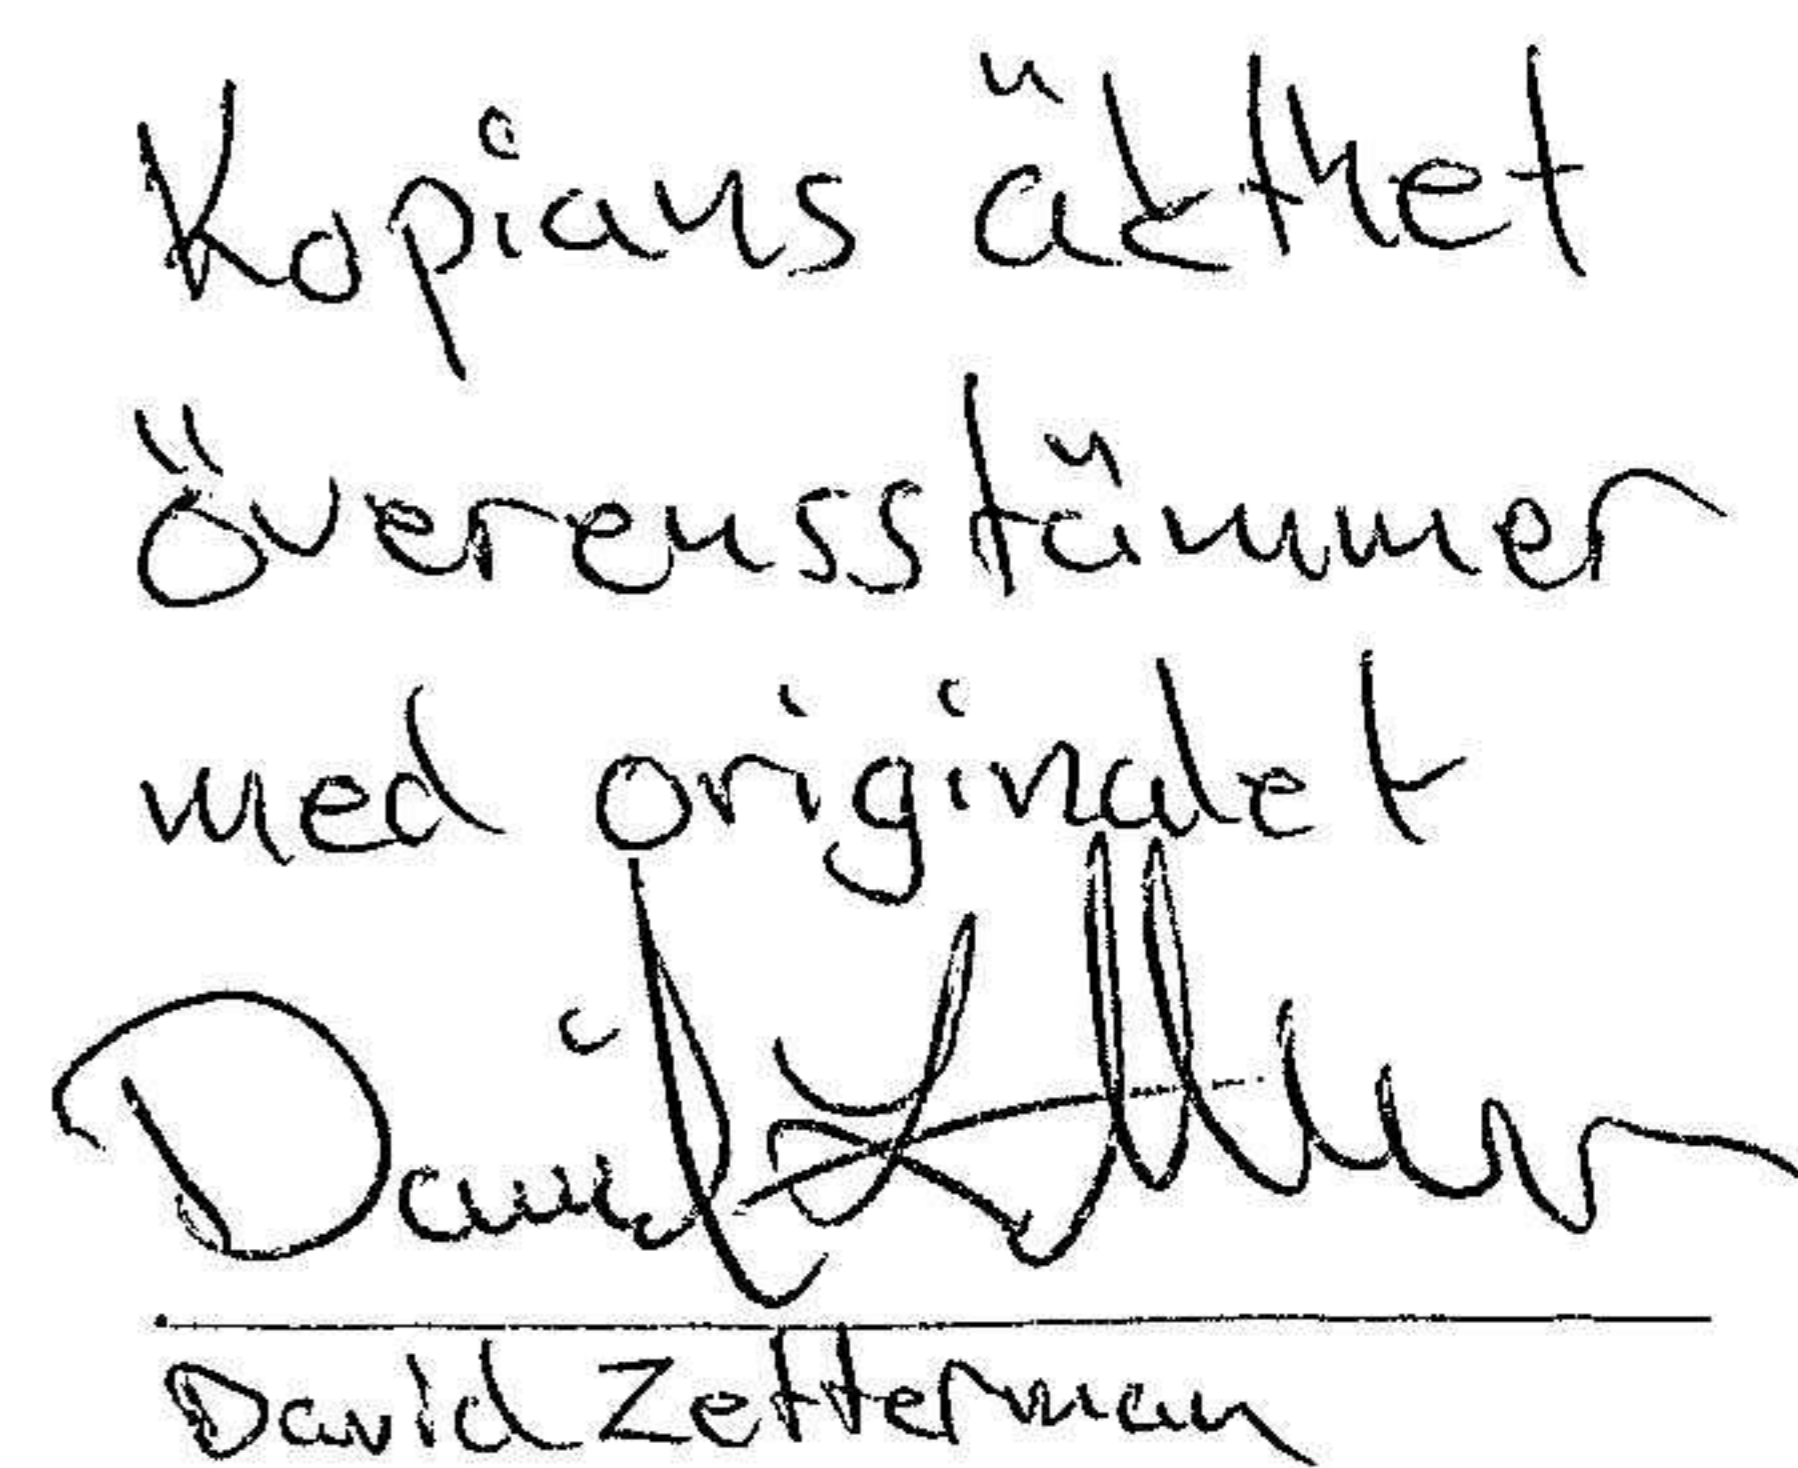 Kopians äkthet
överensstämmer
med originalet
David Zetterman
David Zetterman